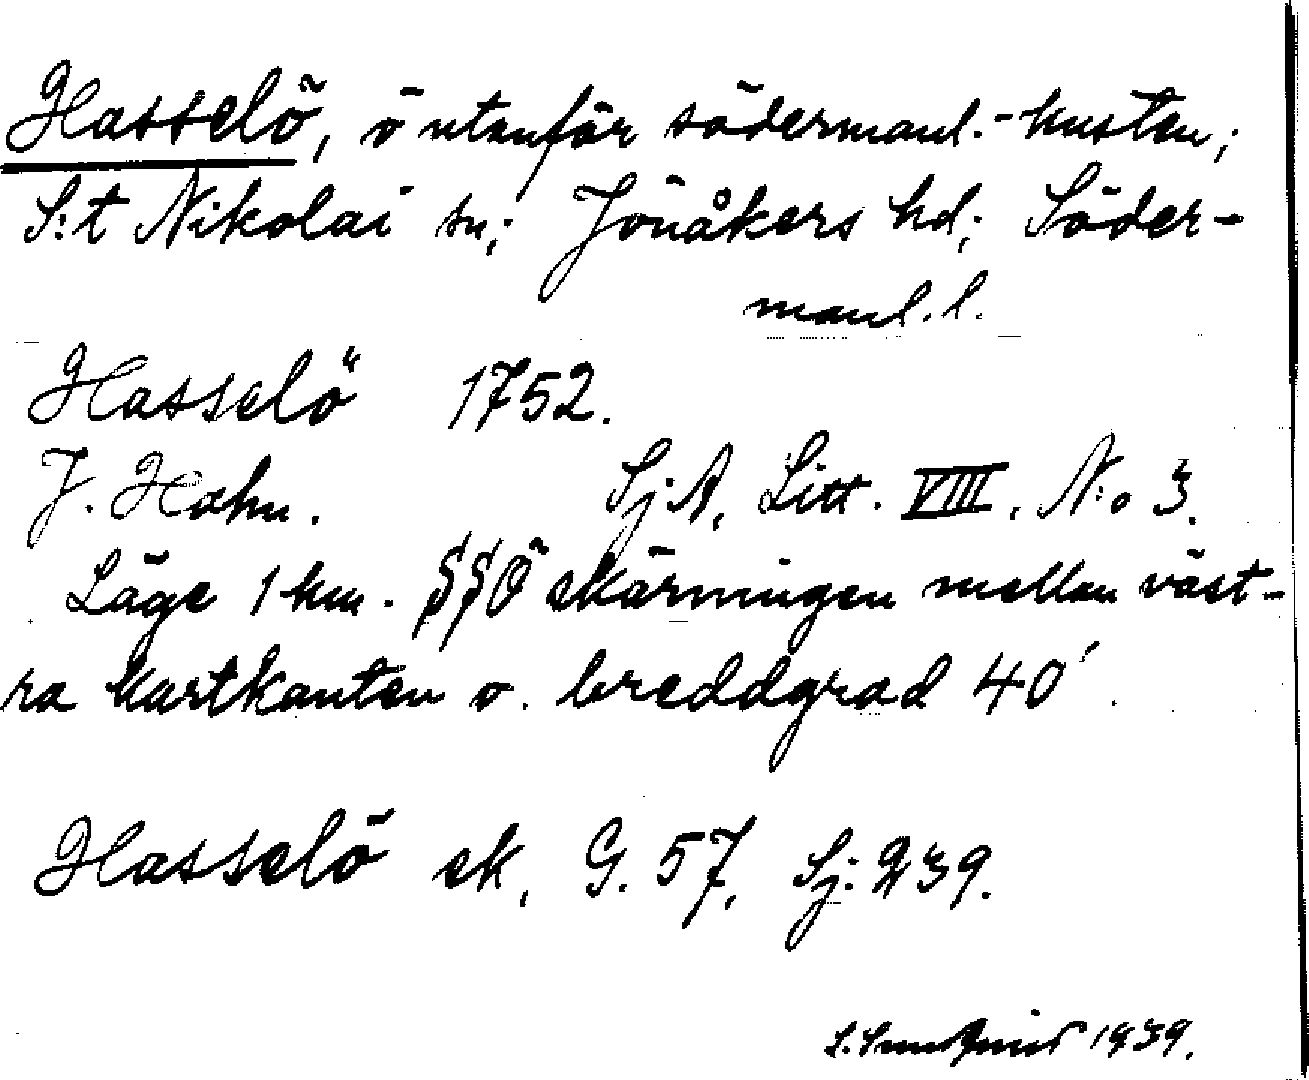 Hasselö, ö utanför södermanl.-kusten;
S:t Nikolai sn; Jönåkers hd; Söder-
manl. l.
Hasselö 1752.
J. Hahn. Sj.A, Litt. VIII, N:o 3.
Läge 1 km. SSÖ skärningen mellan väst-
ra kartkanten o. breddgrad 40'.
Hasselö ek, G. 57, Sj: 239.
1939.